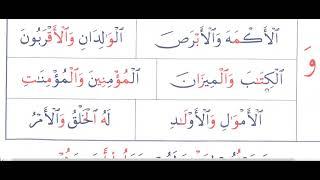 ٱلۡأَكۡمَهَ وَٱلۡأَبۡرَصَ ٱلۡوَٰلِدَانِ وَٱلۡأَقۡرَبُونَ
وَ
ٱلۡكِتَٰبَ وَٱلۡمِيزَانَ ٱلۡمُؤۡمِنِينَ وَٱلۡمُؤۡمِنَٰتِ
ٱلۡأَمۡوَٰلِ وَٱلۡأَوۡلَٰدِ لَهُ ٱلۡخَلۡقُ وَٱلۡأَمۡرُ